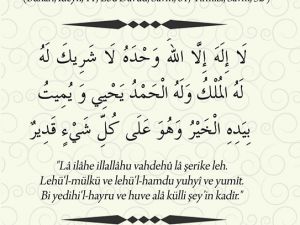 لَا إِلَهَ إِلَّا اللهُ وَحْدَهُ لَا شَرِيكَ لَهُ
لَهُ الْمُلْكُ وَلَهُ الْحَمْدُ يُحْيِي وَ يُمِيتُ
بِيَدِهِ الْخَيْرُ وَهُوَ عَلَى كُلِّ شَيْءٍ قَدِيرٌ
"Lâ ilâhe illallâhu vahdehû lâ şerike leh.
Lehü'l-mülkü ve lehü'l-hamdu yuhyî ve yumît.
Bi yedihi'l-hayru ve huve alâ külli şey'in kadîr."